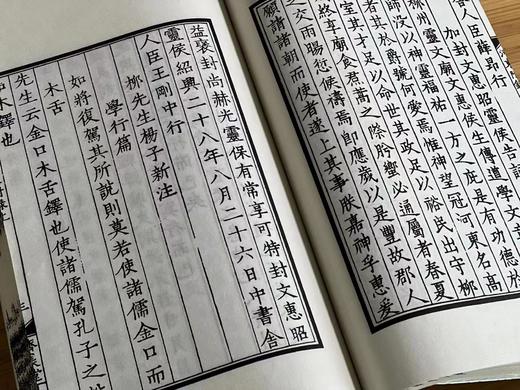 人臣薛昂行
加封文惠昭靈侯告詞
柳州靈文廟文惠侯生傳道學文
師沒以神靈福祐一方之庇是有功德於
者其於爵號何愛焉惟神望冠河東名高
其才足以命世其政足以裕民出守柳
終享廟食君蒿之際肸蠁必通屬者春夏
之交雨暘愆候禱焉即應歲以是豐故郡人
願請諸朝而使者遂上其事朕嘉神乎惠爱
益褒封尚赫光靈保有常享可特封文惠昭
靈侯紹興二十八年八月二十六日中書舍
人臣王剛中行
柳先生楊子新注
學行篇
如將復駕其所說則莫若使諸儒金口而
木舌
先生云金口木舌鐸也使諸儒駕孔子之
木鐸也